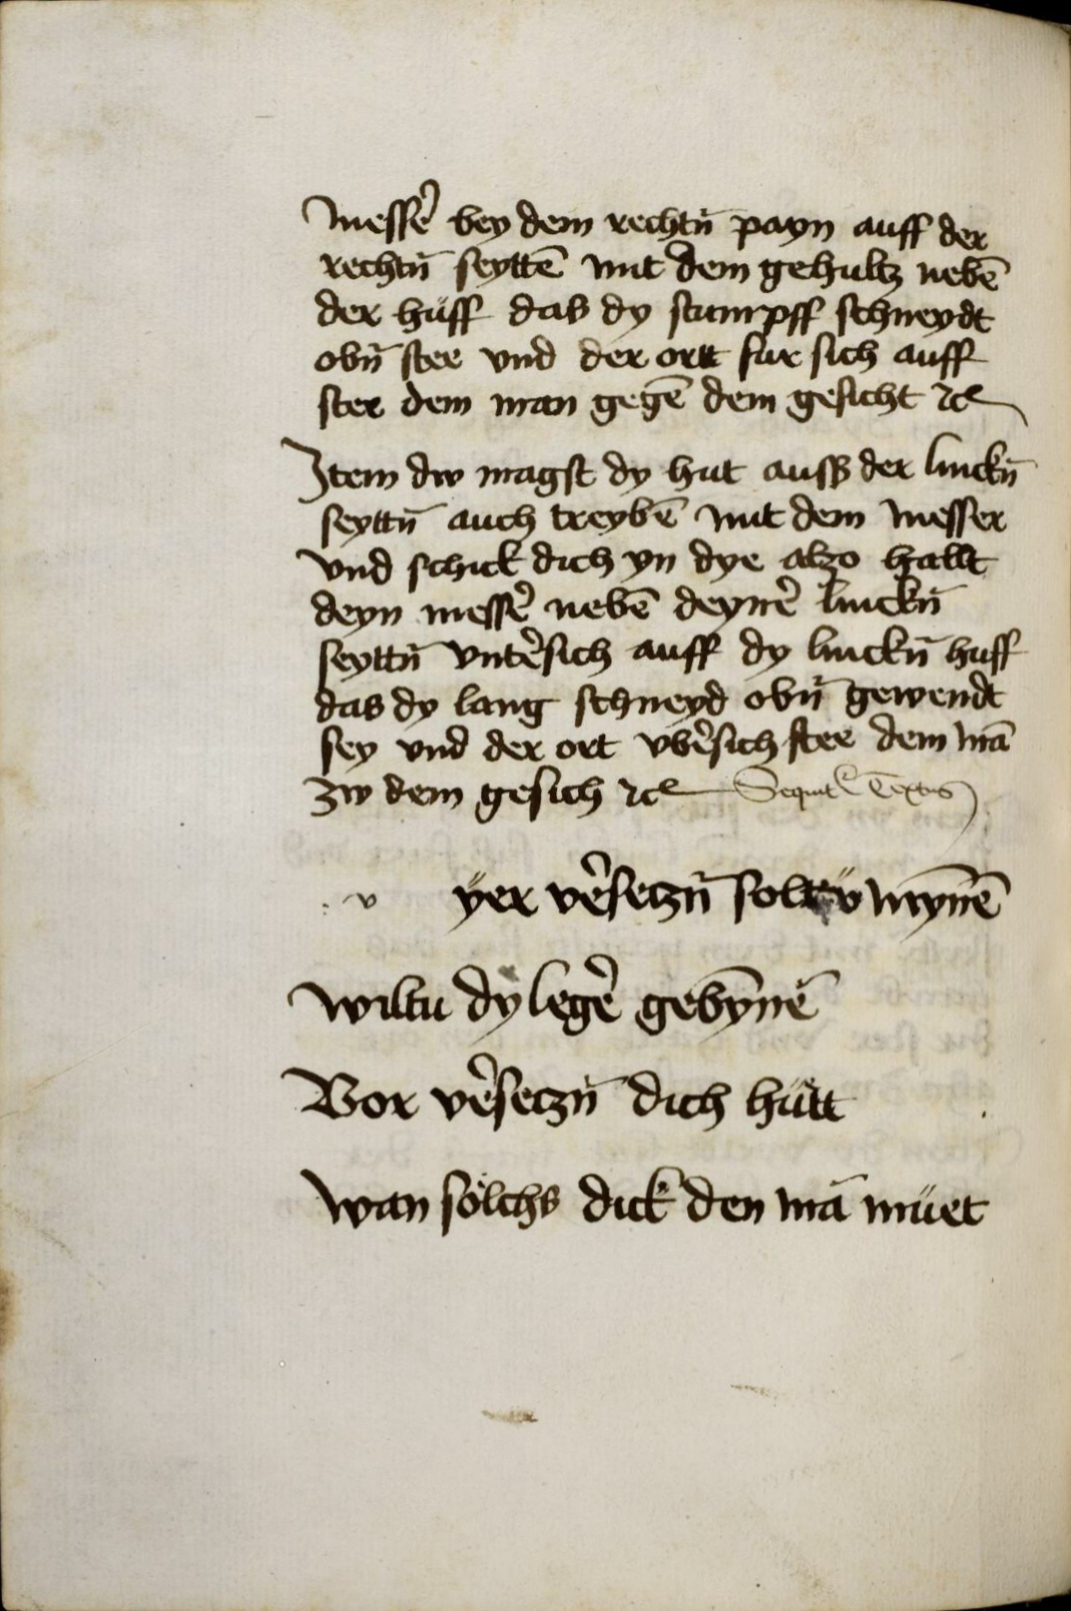 messe᷑ bey dem rechtn̄ payn auff der
rechtn̄ seyttē mit dem gehultz nebē
der hüff das dy stumpff schneydt
obn̄ stee vnd der ortt fur sich auff
stee dem man gegē dem gesicht ⁊c
Item dw magst dy hut auß der linckn̄
seyttn̄ auch treybē mit dem messer
vnd schick dich yn dye alzo hallt
deyn messe᷑ nebē deyne᷑ linckn̄
seyttn̄ vnte᷑sich auff dy linckn̄ huff
das dy lang schneyd obn̄ gewendt
sey vnd der ort vbe᷑sich stee dem mā
zw dem gesich ⁊c Sequit᷑ Textus
v ÿer ve᷑seczn̄ soltü mȳnē
wiltu dy lege᷑ gebȳnē
Vor ve᷑seczn̄ dich hütt
wan sölchs dick den mā müet